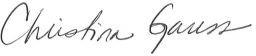 Christina Gauss